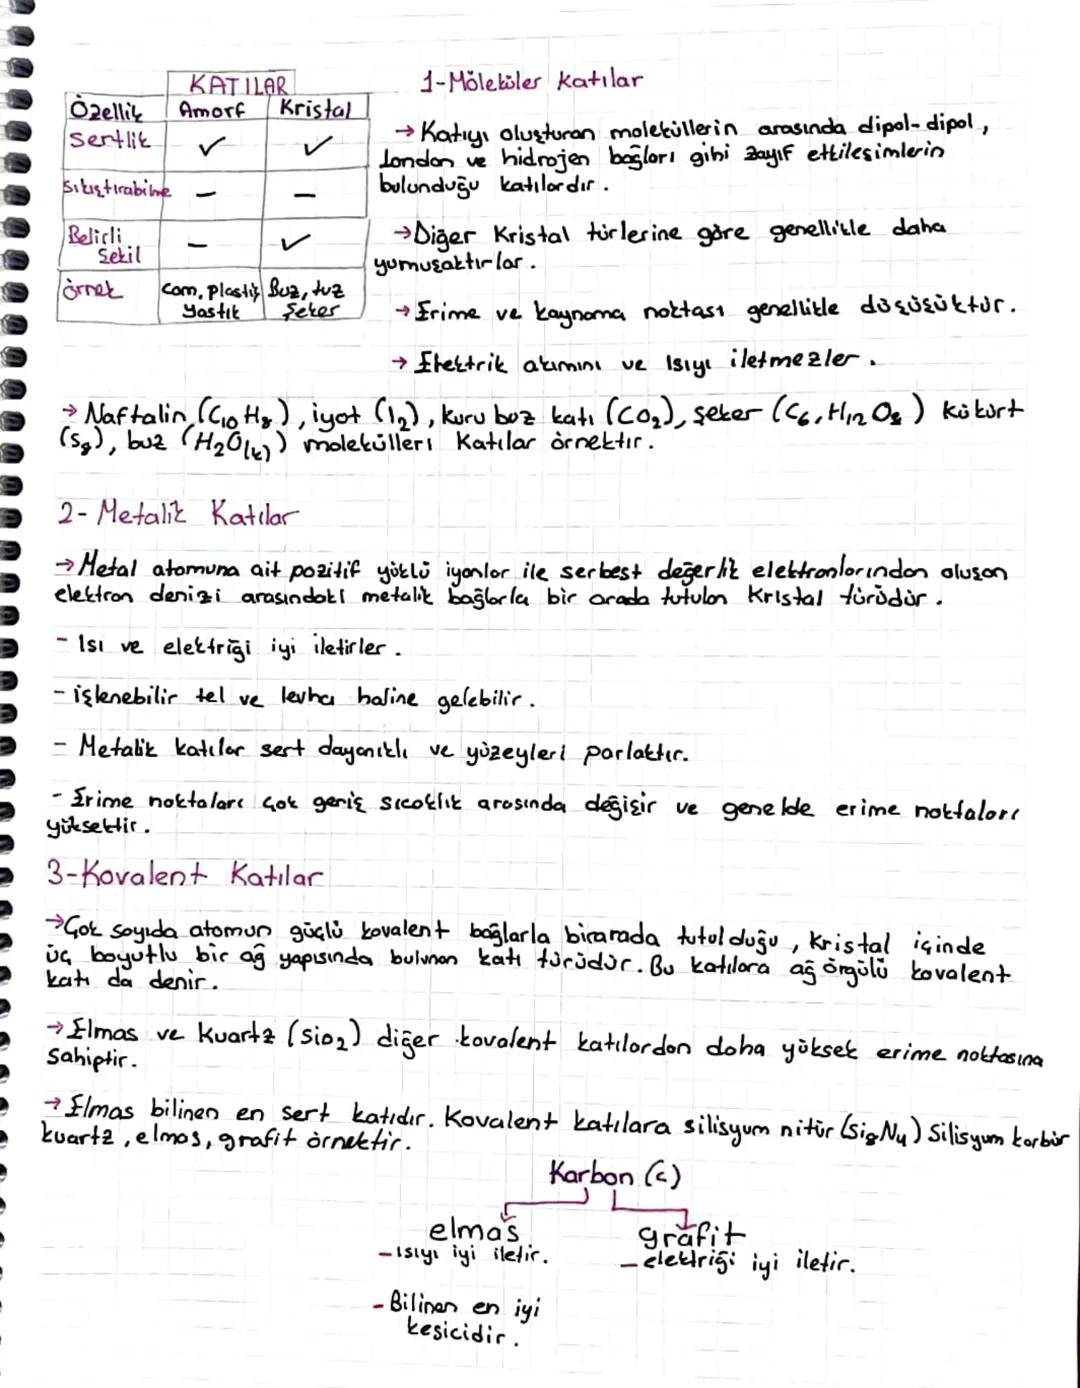 KATILAR
Özellik Amorf Kristal
Sertlik ✓ ✓
Sıkıştırabilme – –
Belirli Şekil – ✓
örnek cam, plastik yastık Buz, tuz şeker
1-Möleküler Katılar
→ Katıyı oluşturan moleküllerin arasında dipol-dipol,
London ve hidrojen bağları gibi zayıf etkileşimlerin
bulunduğu katılardır.
→ Diğer Kristal türlerine göre genellikle daha
yumuşaktırlar.
→ Erime ve kaynama noktası genellikle düşüşüktür.
→ Elektrik akımını ve Isıyı iletmezler.
→ Naftalin (C10H8), iyot (I2), kuru buz katı (CO2), şeker (C6,H12O6) kükürt
(S8), buz (H2O(k)) molekülleri Katılar örnektir.
2- Metalik Katılar
→ Metal atomuna ait pozitif yüklü iyonlar ile serbest değerlik elektronlarından oluşan
elektron denizi arasındaki metalik bağlarla bir arada tutulan Kristal türüdür.
- Isı ve elektriği iyi iletirler.
- işlenebilir tel ve levha haline gelebilir.
- Metalik katılar sert dayanıklı ve yüzeyleri parlaktır.
- Erime noktaları çok geniş sıcaklık arasında değişir ve genelde erime noktaları
yüksektir.
3-Kovalent Katılar
→ Çok sayıda atomun güçlü kovalent bağlarla birarada tutulduğu, Kristal içinde
üç boyutlu bir ağ yapısında bulunan katı türüdür. Bu katılara ağ örgülü kovalent
katı da denir.
→ Elmas ve Kuartz (SiO2) diğer kovalent katılardan daha yüksek erime noktasına
sahiptir.
→ Elmas bilinen en sert katıdır. Kovalent katılara silisyum nitür (Si3N4) Silisyum karbür
kuartz, elmas, grafit örnektir.
Karbon (C)
elmas grafit
- ısıyı iyi iletir. - elektriği iyi iletir.
- Bilinen en iyi
kesicidir.